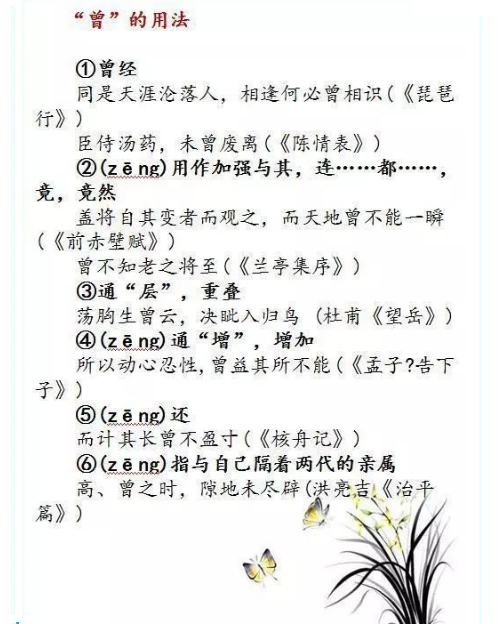 “曾”的用法
①曾经
同是天涯沦落人，相逢何必曾相识(《琵琶
行》)
臣侍汤药，未曾废离(《陈情表》)
②(zēng)用作加强与其，连……都……，
竟，竟然
盖将自其变者而观之，而天地曾不能一瞬
(《前赤壁赋》)
曾不知老之将至(《兰亭集序》)
③通“层”，重叠
荡胸生曾云，决眦入归鸟 (杜甫《望岳》)
④(zēng)通“增”，增加
所以动心忍性,曾益其所不能(《孟子?告下
子》)
⑤(zēng)还
而计其长曾不盈寸(《核舟记》)
⑥(zēng)指与自己隔着两代的亲属
高、曾之时，隙地未尽辟(洪亮吉《治平
篇》)